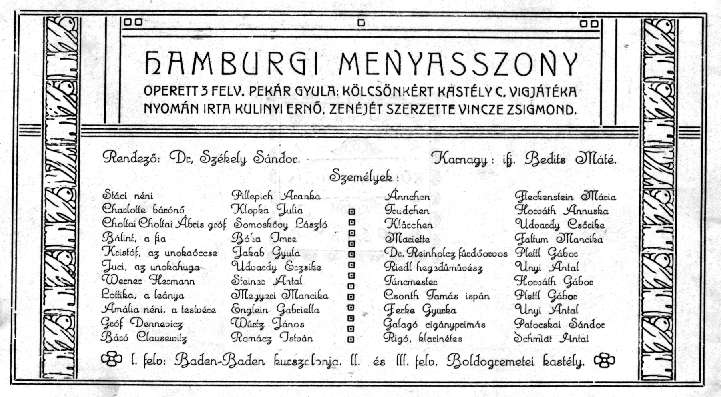 HAMBURGI MENYASSZONY
OPERETT 3 FELV. PEKÁR GYULA: KÖLCSÖNKÉRT KASTÉLY C. VIGJÁTÉKA
NYOMÁN IRTA KULINYI ERNŐ, ZENÉJÉT SZERZETTE VINCZE ZSIGMOND.
Rendező: Dr. Székely Sándor. Karnagy: ifj. Bedits Máté.
Személyek:
Stáci néni Pillepich Aranka
Charlotte bárónő Klopka Julia
Choltai Choltai Ábris gróf Somoskőoy László
Bálint, a fia Bózsa Imre
Kristóf, az unokaöccse Jakab Gyula
Juci, az unokahuga Udvardy Erzsike
Werner Hermann Steiner Antal
Lottika, a leánya Megyeri Mancika
Amália néni, a testvére Englein Gabriella
Gróf Dennewicz Würtz János
Báró Clausewitz Romácz István
Annchen Fleckenstein Mária
Trudchen Horváth Annuska
Klärchen Udvardy Csőrike
Mariette Faltum Mancika
Dr. Reinholcz fürdőorvos Plettl Gábor
Riedl hegedűművész Unyi Antal
Táncmester Horváth Gábor
Csonth Tamás ispán Plettl Gábor
Ferke Gyurka Unyi Antal
Galagó cigányprimás Patocskai Sándor
Rigó, klarinétos Schmidt Antal
I. felv: Baden-Baden kurszalonja. II. és III. felv. Boldogremetei kastély.